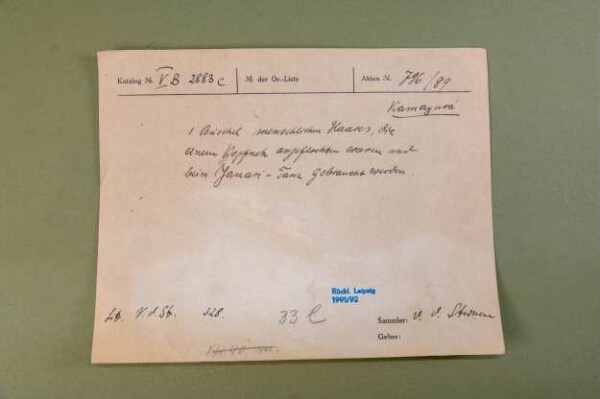 Katalog Nr. V B 2883 c N. der Or.-Liste Akten N. 796/89
Kamayurá
1 Büschel menschlichen Haares, die
einem Kopfnetz angeflochten waren und
beim Yawari-Tanz gebraucht werden.
Rückl. Leipzig
1991/92
V. d. St. 328. 33 l Sammler: v. d. Steinen
Geber: